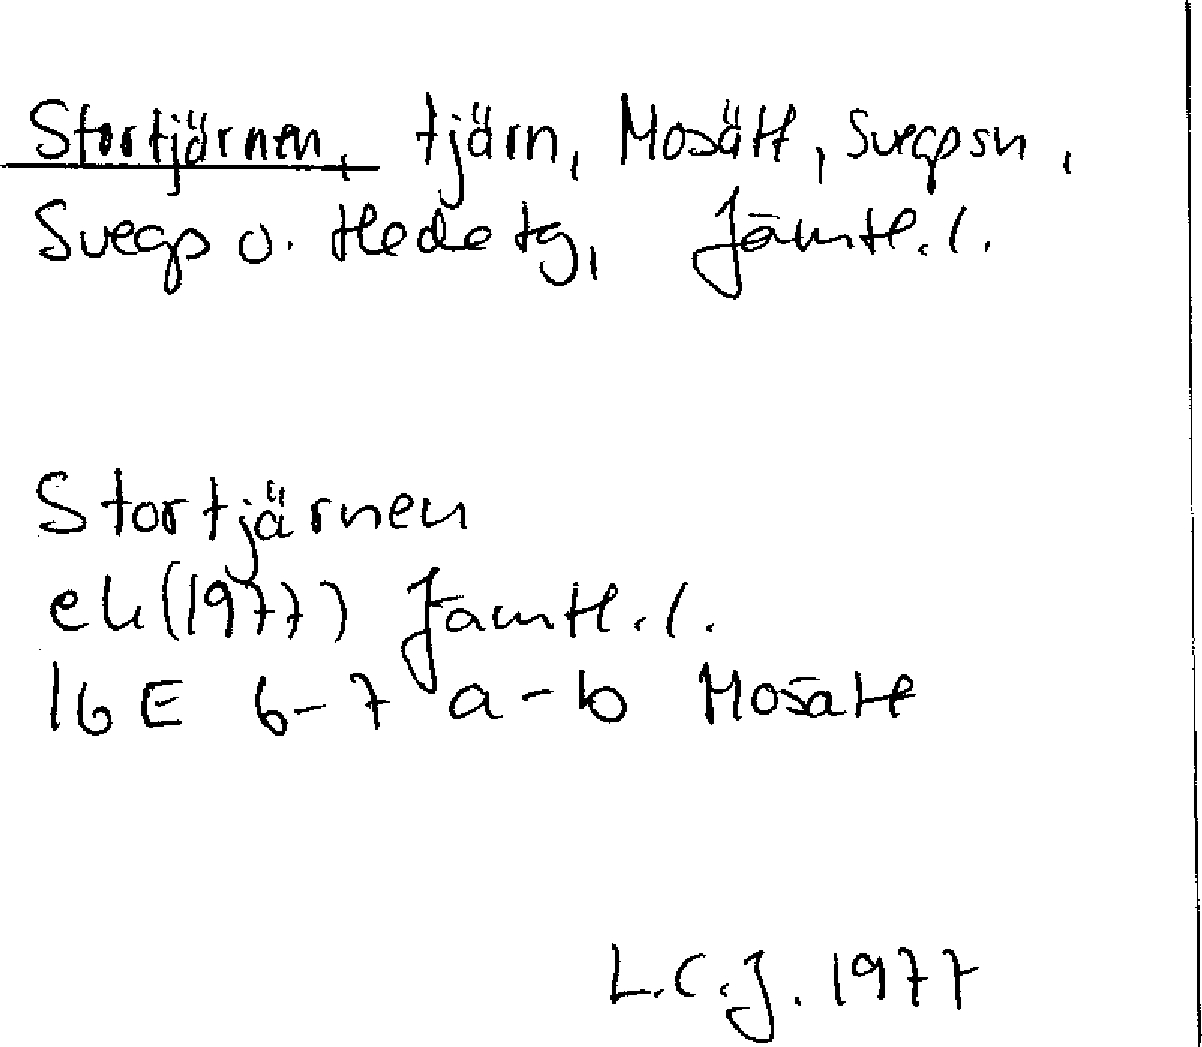 Stortjärnen, tjärn, Mosätt, Svegs sn,
Svegs o. Hede tg, Jämtl. l.
Stortjärnen
ek (1977) Jämtl. l.
16 E 6-7 a-b Mosätt
L.C.J. 1977